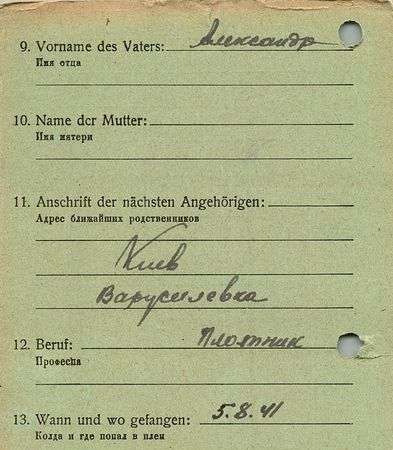 9. Vorname des Vaters: Александр
Имя отца
10. Name der Mutter:
Имя матери
11. Anschrift der nächsten Angehörigen:
Адрес ближайших родственников
Киев
Варусилевка
12. Beruf: Плотник
Професпа
13. Wann und wo gefangen: 5.8.41
Колда и где попал в плен